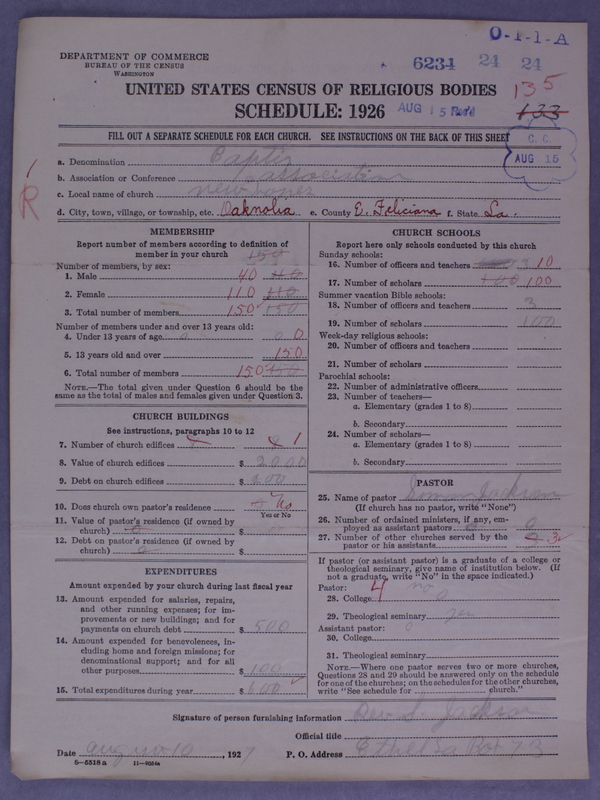 O-1-1-A
DEPARTMENT OF COMMERCE
BUREAU OF THE CENSUS
WASHINGTON
6234 24 24
UNITED STATES CENSUS OF RELIGIOUS BODIES
135
SCHEDULE: 1926
AUG 15 Rec'd
133
FILL OUT A SEPARATE SCHEDULE FOR EACH CHURCH. SEE INSTRUCTIONS ON THE BACK OF THIS SHEET
C. C.
AUG 15
R
a. Denomination Baptis
b. Association or Conference association
c. Local name of church new
d. City, town, village, or township, etc. Oaknolia e. County E. Feliciana f. State La.
MEMBERSHIP
Report number of members according to definition of
member in your church 150
Number of members, by sex:
1. Male 40
2. Female 110 110
3. Total number of members 150 150
Number of members under and over 13 years old:
4. Under 13 years of age 0 0
5. 13 years old and over 150
6. Total number of members 150 150
NOTE.—The total given under Question 6 should be the
same as the total of males and females given under Question 3.
CHURCH BUILDINGS
See instructions, paragraphs 10 to 12
7. Number of church edifices 1
8. Value of church edifices $ 2000
9. Debt on church edifices $
10. Does church own pastor's residence No
Yes or No
11. Value of pastor's residence (if owned by
church) 0 $
12. Debt on pastor's residence (if owned by
church) 0 $
EXPENDITURES
Amount expended by your church during last fiscal year
13. Amount expended for salaries, repairs,
and other running expenses; for im-
provements or new buildings; and for
payments on church debt $ 500
14. Amount expended for benevolences, in-
cluding home and foreign missions; for
denominational support; and for all
other purposes $ 100
15. Total expenditures during year $ 600
CHURCH SCHOOLS
Report here only schools conducted by this church
Sunday schools:
16. Number of officers and teachers 10
17. Number of scholars 100 100
Summer vacation Bible schools:
18. Number of officers and teachers 3
19. Number of scholars 100
Week-day religious schools:
20. Number of officers and teachers
21. Number of scholars
Parochial schools:
22. Number of administrative officers
23. Number of teachers—
a. Elementary (grades 1 to 8)
b. Secondary
24. Number of scholars—
a. Elementary (grades 1 to 8)
b. Secondary
PASTOR
25. Name of pastor Jackson
(If church has no pastor, write "None")
26. Number of ordained ministers, if any, em-
ployed as assistant pastors 0
27. Number of other churches served by the
pastor or his assistants 3
If pastor (or assistant pastor) is a graduate of a college or
theological seminary, give name of institution below. (If
not a graduate, write "No" in the space indicated.)
Pastor: 4 no
28. College 0
29. Theological seminary
Assistant pastor: 0
30. College
31. Theological seminary
NOTE.—Where one pastor serves two or more churches,
Questions 28 and 29 should be answered only on the schedule
for one of the churches; on the schedules for the other churches,
write "See schedule for church."
Signature of person furnishing information Rev S. Jackson
Official title
Date august 10, 1927 P. O. Address Ethel La Box 73
8—5518 a 11—9084a